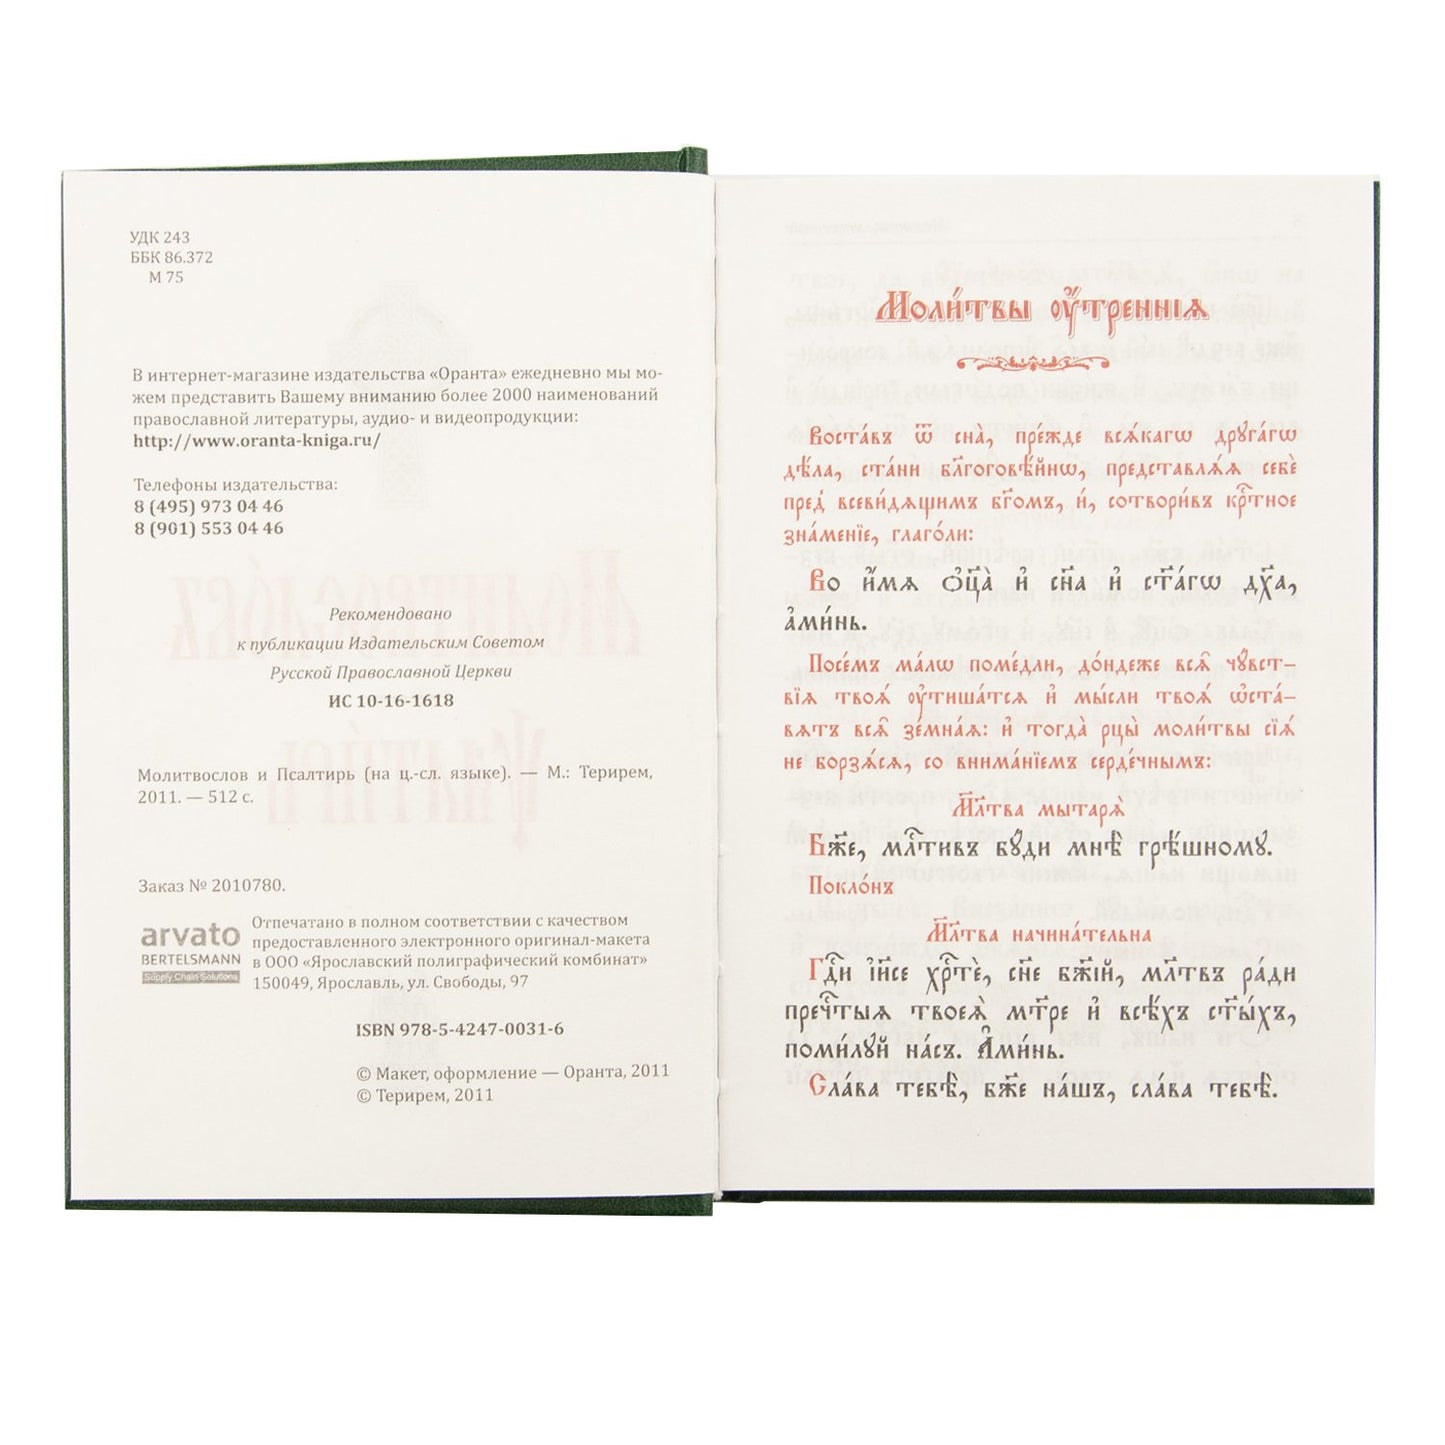 УДК 243
ББК 86.372
М 75
В интернет-магазине издательства «Оранта» ежедневно мы мо-
жем представить Вашему вниманию более 2000 наименований
православной литературы, аудио- и видеопродукции:
http://www.oranta-kniga.ru/
Телефоны издательства:
8 (495) 973 04 46
8 (901) 553 04 46
Рекомендовано
к публикации Издательским Советом
Русской Православной Церкви
ИС 10-16-1618
Молитвослов и Псалтирь (на ц.-сл. языке). — М.: Терирем,
2011. — 512 с.
Заказ № 2010780.
arvato
BERTELSMANN
Supply Chain Solutions
Отпечатано в полном соответствии с качеством
предоставленного электронного оригинал-макета
в ООО «Ярославский полиграфический комбинат»
150049, Ярославль, ул. Свободы, 97
ISBN 978-5-4247-0031-6
© Макет, оформление — Оранта, 2011
© Терирем, 2011
Моли́твы ᲂу҆́тренніѧ
Воста́въ ѿ сна̀, пре́жде всѧ́кагѡ друга́гѡ
дѣ́ла, ста́ни бл҃гоговѣ́йнѡ, представлѧ́ѧ себѐ
пред̾ всеви́дѧщимъ бг҃омъ, и҆, сотвори́въ крⷭ҇тное
зна́менїе, глаго́ли:
Во и҆́мѧ ѻ҆ц҃а̀ и҆ сн҃а и҆ ст҃а́гѡ дх҃а,
а҆ми́нь.
Посе́мъ ма́лѡ поме́дли, до́ндеже всѧ̑ чꙋ̑вст-
вїѧ твоѧ̑ ᲂу҆тиша́тсѧ и҆ мы́сли твоѧ̑ ѡ҆ста́-
вѧтъ всѧ̑ земна́ѧ: и҆ тогда̀ рцы̀ моли̑твы сїѧ̑
не борзѧ́сѧ, со внима́нїемъ серде́чнымъ:
Мл҃тва мытарѧ̀
Бж҃е, млⷭ҇тивъ бꙋ́ди мнѣ̀ грѣ́шномꙋ.
Покло́нъ
Мл҃тва начина́тельна
Гдⷭ҇и і҆и҃се хрⷭ҇тѐ, сн҃е бж҃їй, мл҃твъ ра́ди
пречⷭ҇тыѧ твоеѧ̀ мт҃ре и҆ всѣ́хъ ст҃ы́хъ,
поми́лꙋй на́съ. А҆ми́нь.
Сла́ва тебѣ̀, бж҃е на́шъ, сла́ва тебѣ̀.